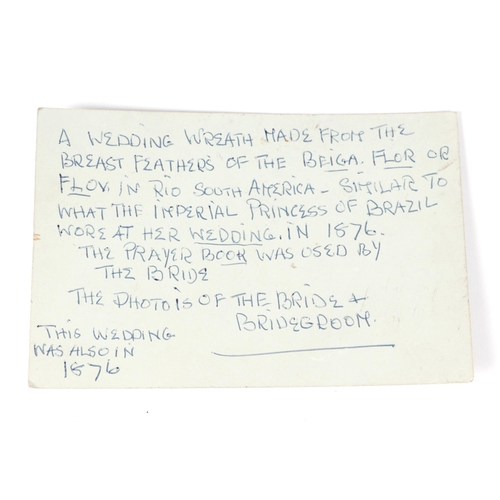 A WEDDING WREATH MADE FROM THE
BREAST FEATHERS OF THE BEIGA. FLOR OR
FLOV. IN RIO SOUTH AMERICA - SIMILAR TO
WHAT THE IMPERIAL PRINCESS OF BRAZIL
WORE AT HER WEDDING. IN 1876.
THE PRAYER BOOK WAS USED BY
THE BRIDE
THE PHOTO IS OF THE BRIDE +
BRIDEGROOM.
THIS WEDDING
WAS ALSO IN
1876